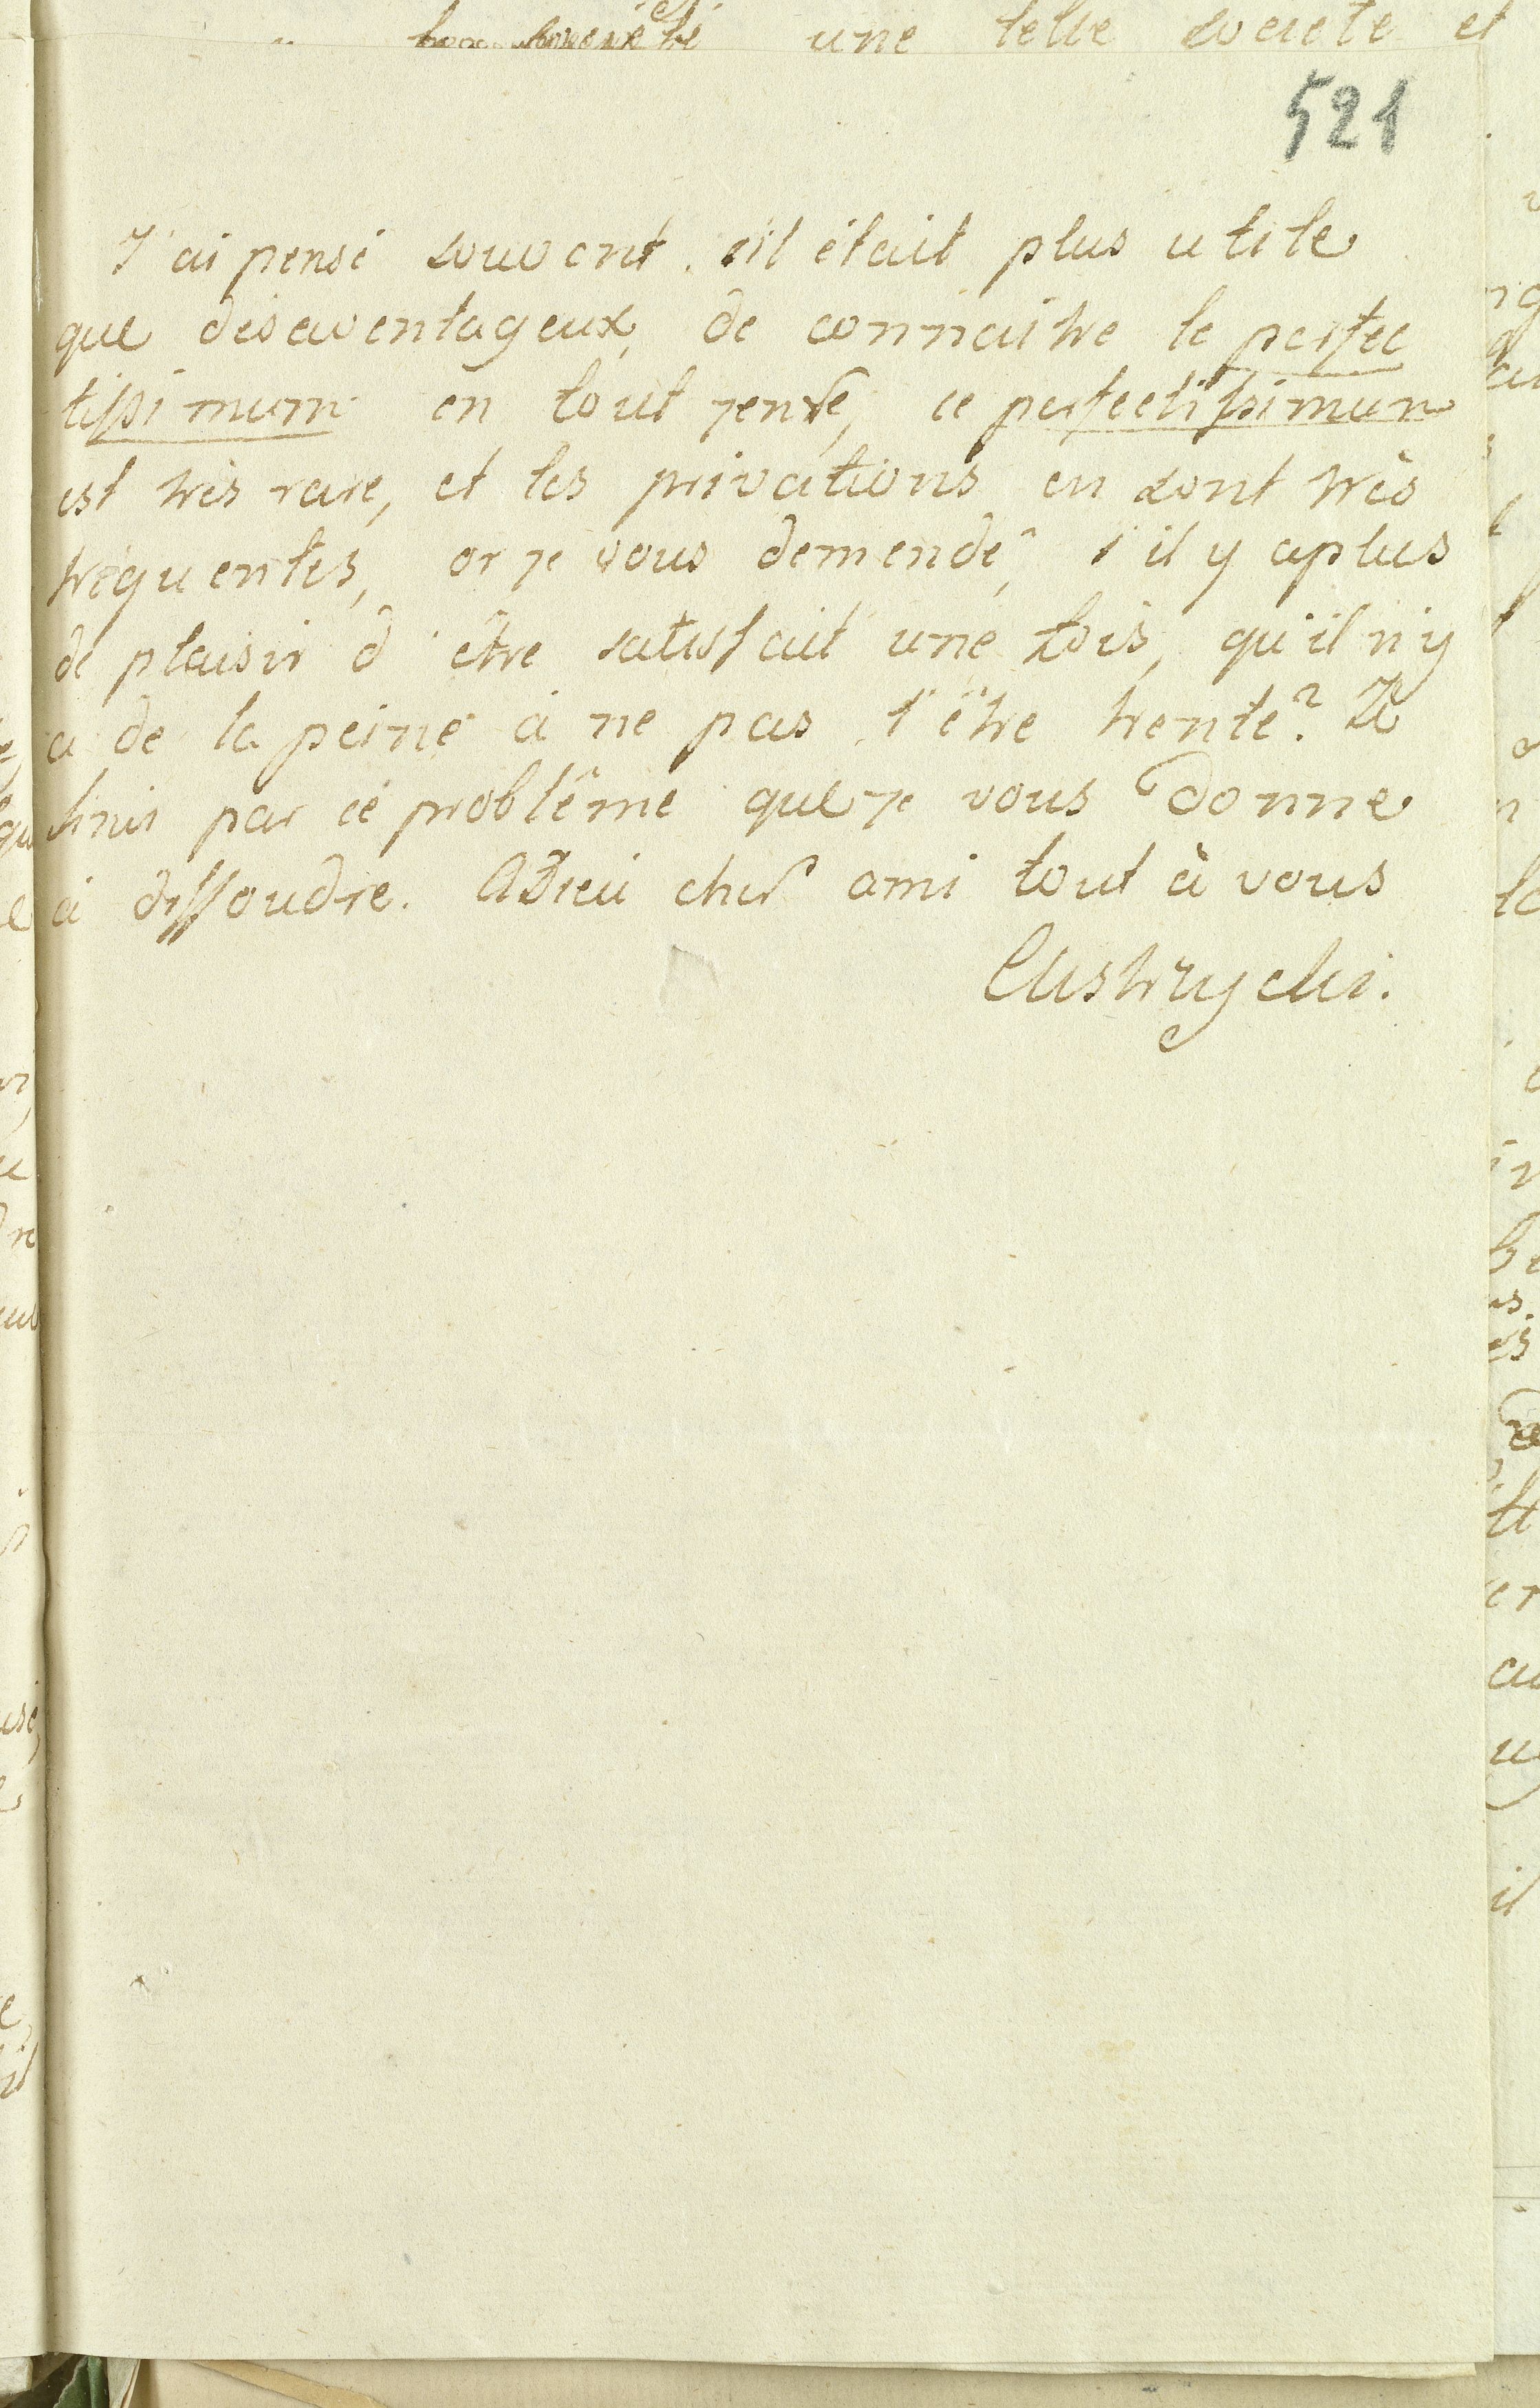 une telle societé et
521
J'ai pensé souvent s'il était plus utile
que desaventageux, de connaitre le perfec
tissimum en tout jenre, ce perfectissimum
est très rare, et les privations en sont très
frequentes, or je vous demende, s'il y a plus
de plaisir d'être satisfait une fois, qu'il n'y
a de la peine à ne pas l'être trente? Je
finis par ce problême que je vous donne
à dissoudre. Adieu cher ami tout à vous